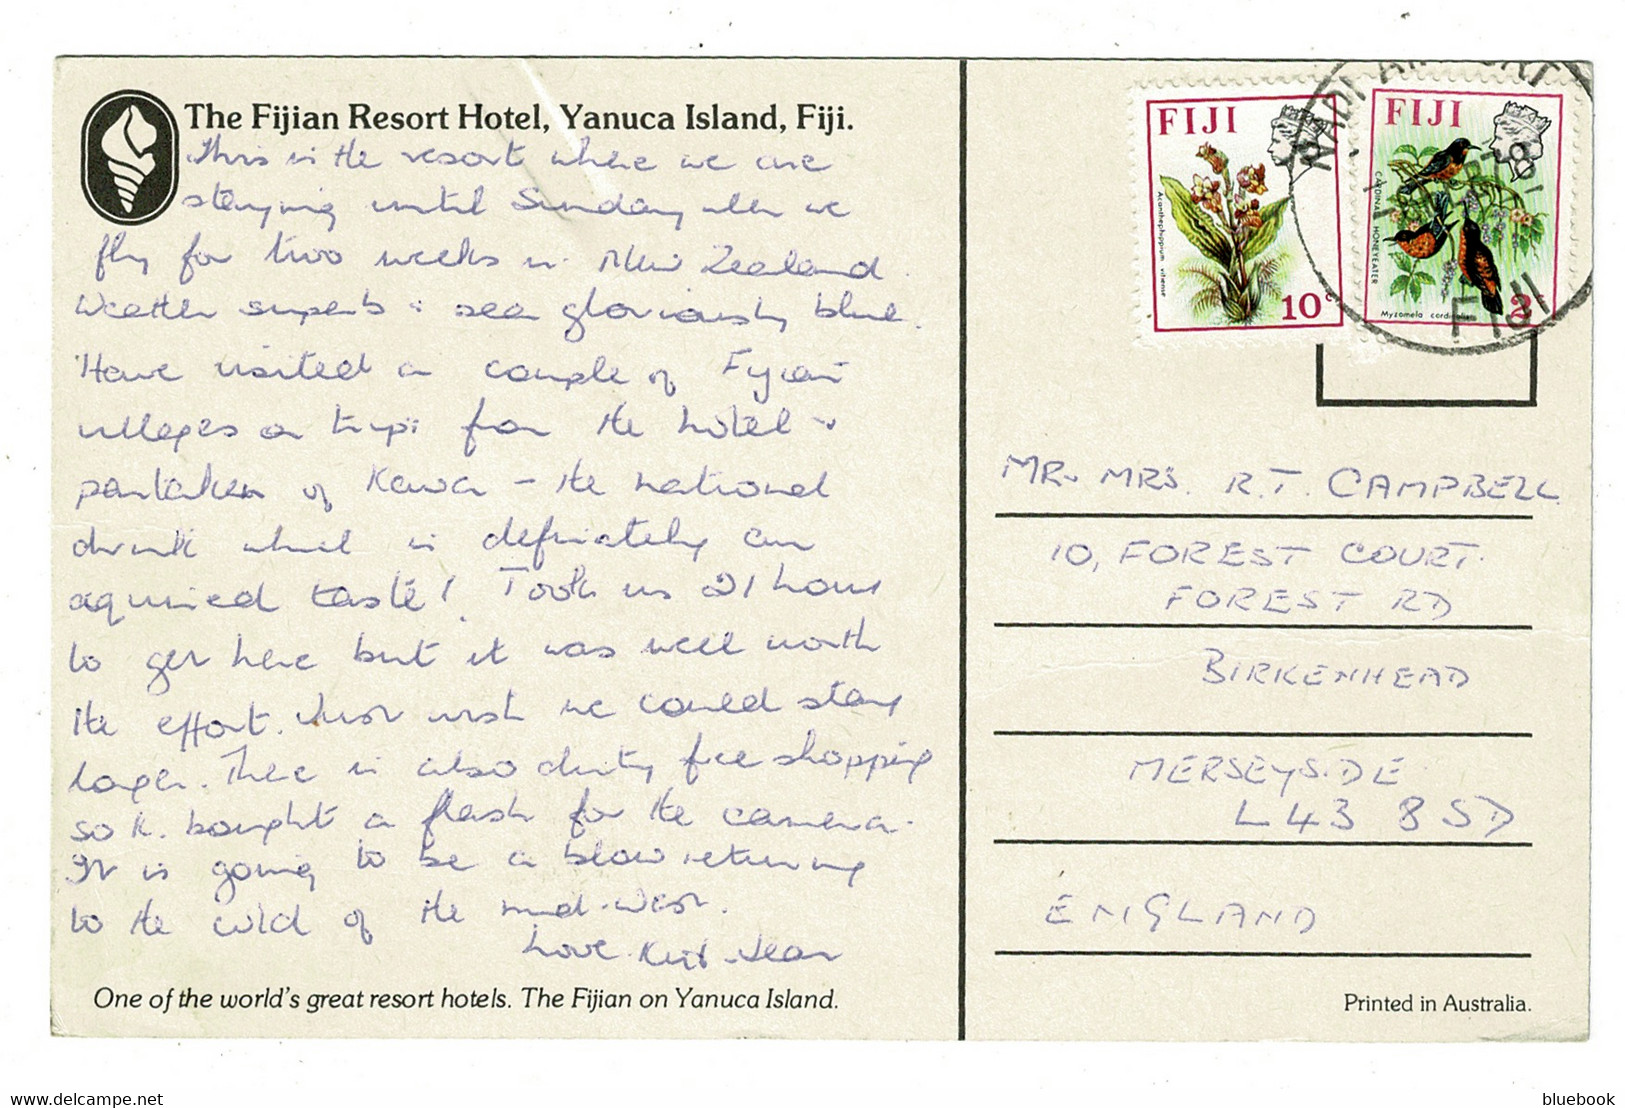 The Fijian Resort Hotel, Yanuca Island, Fiji.
This is the resort where we are
staying until Sunday when we
fly for two weeks in New Zealand.
Weather superb & sea gloriously blue.
Have visited a couple of Fijian
villages on trips from the hotel &
partaken of Kava - the national
drink which is definately an
aquired taste! Took us 21 hours
to get here but it was well worth
the effort. Just wish we could stay
longer. There is also duty free shopping
so K. bought a flash for the camera.
It is going to be a blow returning
to the cold of the mid-West.
Love Jean
One of the world's great resort hotels. The Fijian on Yanuca Island.
FIJI
Acanthephippium vitiense
10c
FIJI
CARDINAL HONEYEATER
Myzomela cardinalis
2c
NADI AIRPORT
FIJI
MR. MRS. R.T. CAMPBELL
10, FOREST COURT.
FOREST RD
BIRKENHEAD
MERSEYSIDE
L43 8SD
ENGLAND
Printed in Australia.
www.delcampe.net
bluebook